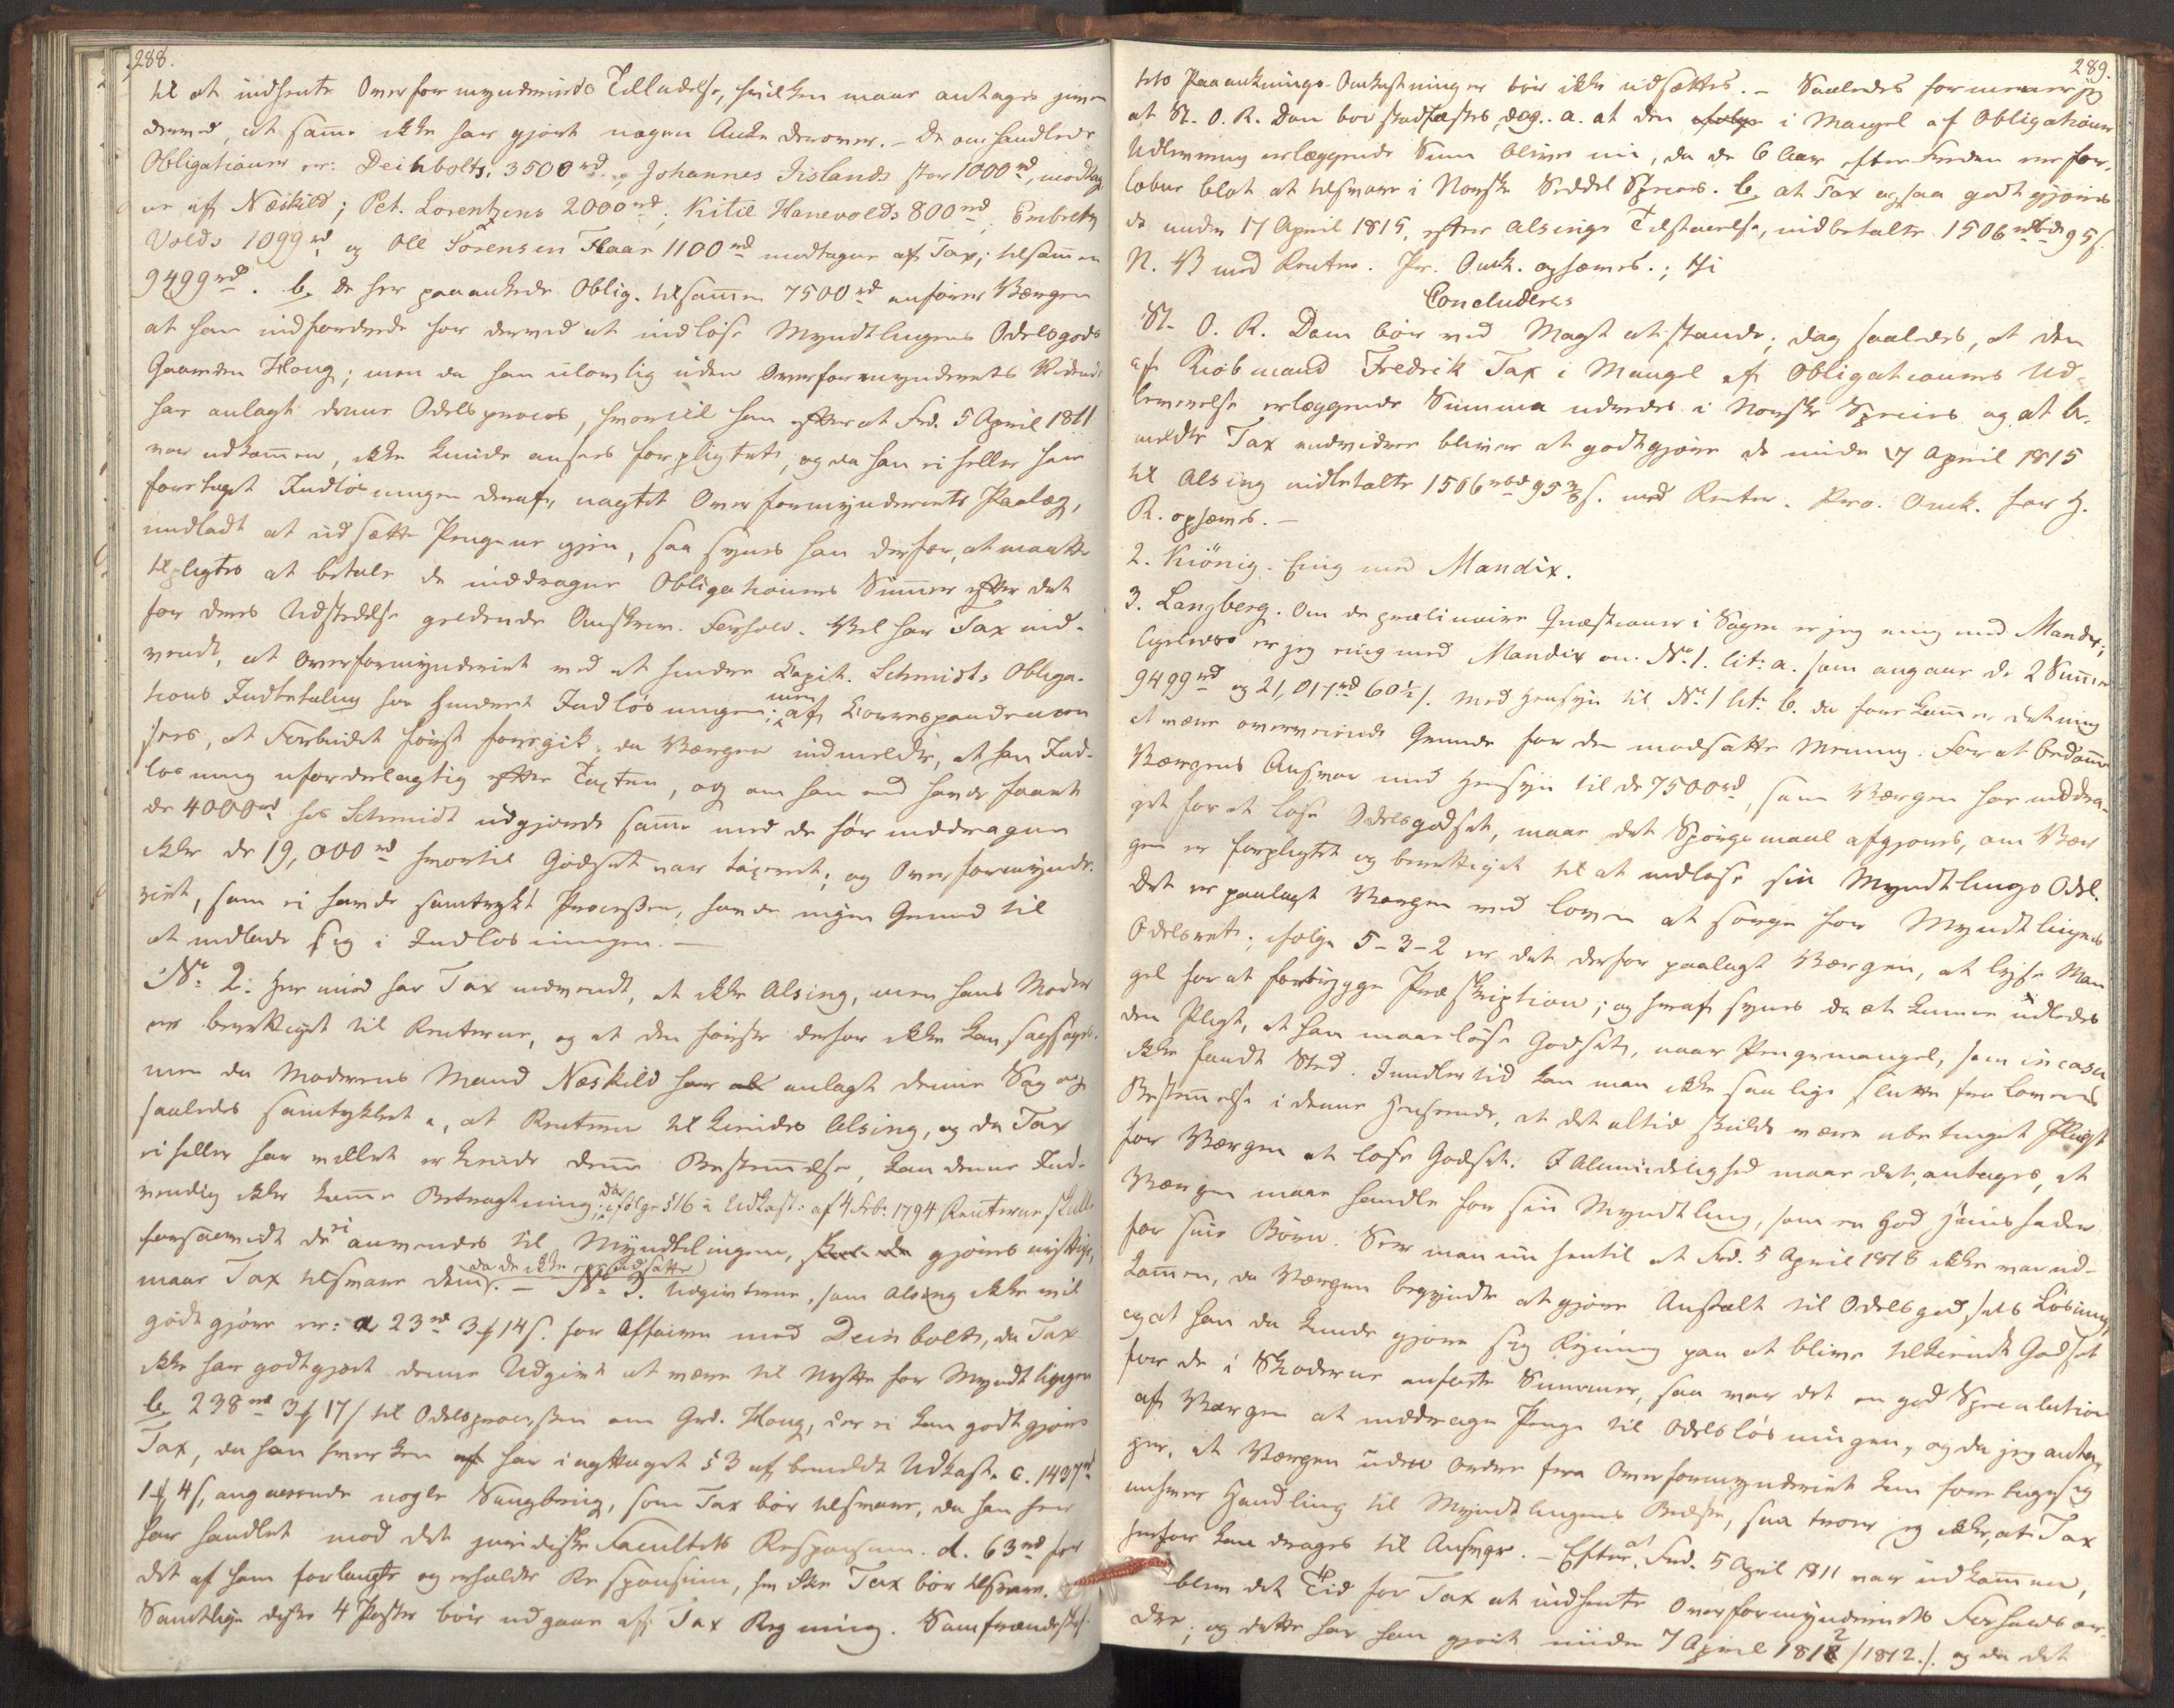 288.
til at indhente Overformynderiets Tilladelse, hvilken maae antages given
derved, at samme ikke har gjort nogen Anke derover. - De omhandlede
Obligationer er: Deinbolts 3500 rd, Johannes Jislands stor 1000 rd, modtag-
ne af Næskild; Pet. Lorentzens 2000 rd; Kitil Hanevolds 800 rd, Embret
Volds 1099 rd og Oll Sörensen Flaar 1100 rd modtagne af Tax; tilsammen
9499 rd. b, De her paaankede Oblig. tilsammen 7500 rd anfører Værgen
at han indfordrede for derved at indløse Myndtlingens Odelsgods
Gaarden Houg; men da han ulovlig uden Overformynderiets Vidende
har anlagt denne Odelsproces, hvortil han efterat Frd. 5 April 1811
var udkommen, ikke kunde ansees forpligtet, og da han ei heller har
foretaget Indløsningen deraf, uagtet Overformynderiets Paalæg,
undladt at udsætte Pengene igjen, saa synes han derfor, at maatte
tilpligtes at betale de inddragne Obligationers Summer efter det
for deres Udstedelse gieldende Omskrivn. Forhold. Vel har Tax ind-
vendt, at Overformynderiet ved at hindre Capit. Schmidts Obliga-
tions Indbetaling har hindret Indløsningen; men af Correspondencen
sees, at Forbudet først foregik, da Værgen indmeldte, at han Ind-
løsning ufordelagtig efter Taxten, og om han end havde faaet
de 4000 rd hos Schmidt udgjorde samme med de før inddragne
ikke de 19,000 rd hvortil Godset var taxeret; og Overformynde-
riet, som ei havde samtykt Processen, havde ingen Grund til
at indlade sig i Indløsningen. -
No 2: Her imod har Tax indvendt, at ikke Alsing, men hans Moder
er berettiget til Renterne, og at den første derfor ikke kan sagsøge.
men da Moderens Mand Næskild har anlagt denne Sag og
saaledes samtykket i, at Renterne tilkiendes Alsing, og da Tax
ei heller har villet erkiende denne Bestemmelse, kan denne Ind-
vending ikke komme i Betragtning; da ifølge § 16 i Udkast. af 4 Feb: 1794 Renterne skulle
forsaavidt de ei anvendes til Myndtlingen, gjøres nyttige,
maae Tax tilsvare dem, (da de ikke ere udsatte) - No 3. Udgivterne, som Alsing ikke vil
godtgjøre er: a 23 rd 3 ꝑ 14 s. for Affairen med Deinbolts, da Tax
ikke har godtgjort denne Udgivt at være til Nytte for Myndtlingen
b, 238 rd 3 ꝑ 17 s til Odelsprocessen om Grd. Houg, der ei kan godtgjøres
Tax, da han hverken har iagttaget § 3 af bemeldt Udkast. c. 1437 rd
1 ꝑ 4 s, angaaende nogle Saugbrug, som Tax bør tilsvare, da han her
har handlet mod det juridiske Facultets Responsum. d. 63 rd for
det af ham forlangte og erholdte Responsum, hvilke Tax bør tilsvare.
Samtlige disse 4 Poster bør udgaae af Tax Regning.
289.
tets Paaanknings-Omkostninger bør ikke udsættes. - Saaledes formener jeg
at St. O. R. Dom bør stadfæstes, dog. a. at den i Mangel af Obligationers
Udlevering erlæggende Sum bliver nu, da de 6 Aar efter Freden ere for-
løbne blot at tilsvare i Norske Seddel Species. b, at Tax ogsaa godtgjøres
de under 17 April 1815, efter Alsings Tilstaaelse, indbetalte 1506 rbd 95 s.
N. V. med Renter. Pr. Omk. ophæves.; Thi
Concluderes
St. O. R. Dom bør ved Magt at stande; dog saaledes, at den
af Kiøbmand Fredrik Tax i Mangel af Obligationers Ud-
levereelse erlæggende Summa udredes i Norske Species og at be-
meldte Tax endvidere bliver at godtgjøre de under 17 April 1815
til Alsing indbetalte 1506 rbd 95 s. med Renter. Pro. Omk. for H.
R. ophæves. -
2. Kiönig. Enig med Mandix.
3. Langberg. Om de præliminaire Qvæstioner i Sagen er jeg enig med Mandix;
ligeledes er jeg enig med Mandix om No. 1. lit: a. som angaaer de 2 Summer
9499 rd og 21,017 rd 60½ s. Med Hensyn til No 1 lit: b. da forekommer det mig
at være overveiende Grunde for den modsatte Mening. For at bedømme
Værgens Ansvar med Hensyn til de 7500 rd, som Værgen har inddra-
get for at løse Odelsgodset, maae det Spörgsmaal afgjøres, om Vær-
gen er forpligtet og berettiget til at indløse sin Myndtlings Odel.
Det er paalagt Værgen ved Loven at sørge for Myndtlingens
Odelsret; ifølge 5-3-2 er det derfor paalagt Værgen, at lyse Man-
gel for at forebygge Præskription; og heraf synes da at kunne udledes
den Pligt, at han maae løse Godset, naar Pengemangel, som in casu
ikke fandt Sted. Imidlertid kan man ikke saa lige slutte fra Lovens
Bestemmelse i denne Henseende, at det altid skulde være ubetinget Pligt
for Værgen at løse Godset. I Almindelighed maae det antages, at
Værgen maae handle for sin Myndtling, som en god Huusfader
for sine Børn. Seer man nu hentil at Frd. 5 April 1818 ikke var ud-
kommen, da Værgen begyndte at gjøre Anstalt til Odelsgodsets Løsning,
og at han da kunde gjøre sig Regning paa at blive tilkiendt Godset
for de i Skøderne anførte Summer, saa var det en god Speculation
af Værgen at inddrage Penge til Odelsløsningen, og da jeg anta-
ger, at Værgen uden Ordre fra Overformynderiet kan foretage sig
enhver Handling til Myndtlingens Bedste, saa troer jeg ikke, at Tax
herfor kan drages til Ansvar. - Efterat Frd. 5 April 1811 var udkommen,
blev det Tid for Tax at indhente Overformynderiets Forholdsor-
dre; og dette har han gjort under 7 April 1812 /1812./ og da det